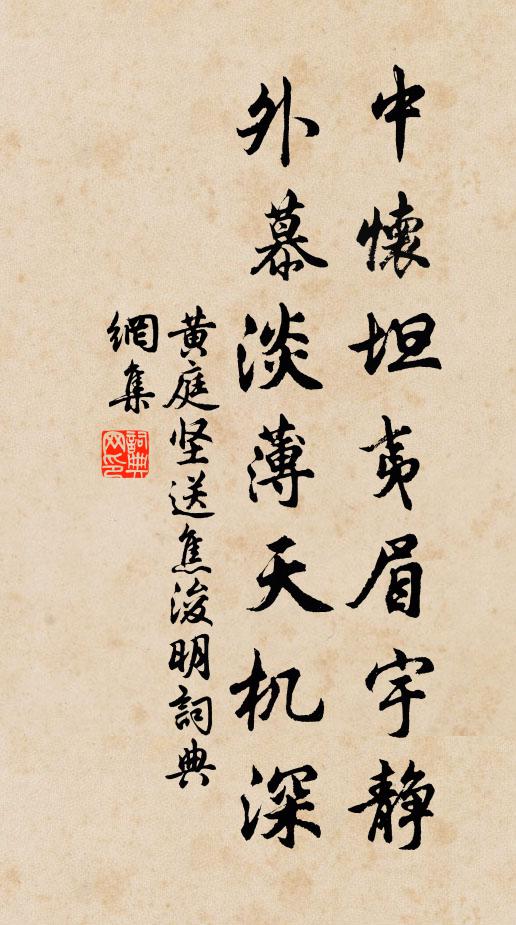 中懷坦夷眉宇静
外慕淡薄天机深
黄庭坚送焦浚明詞典
網集
詞典
网印